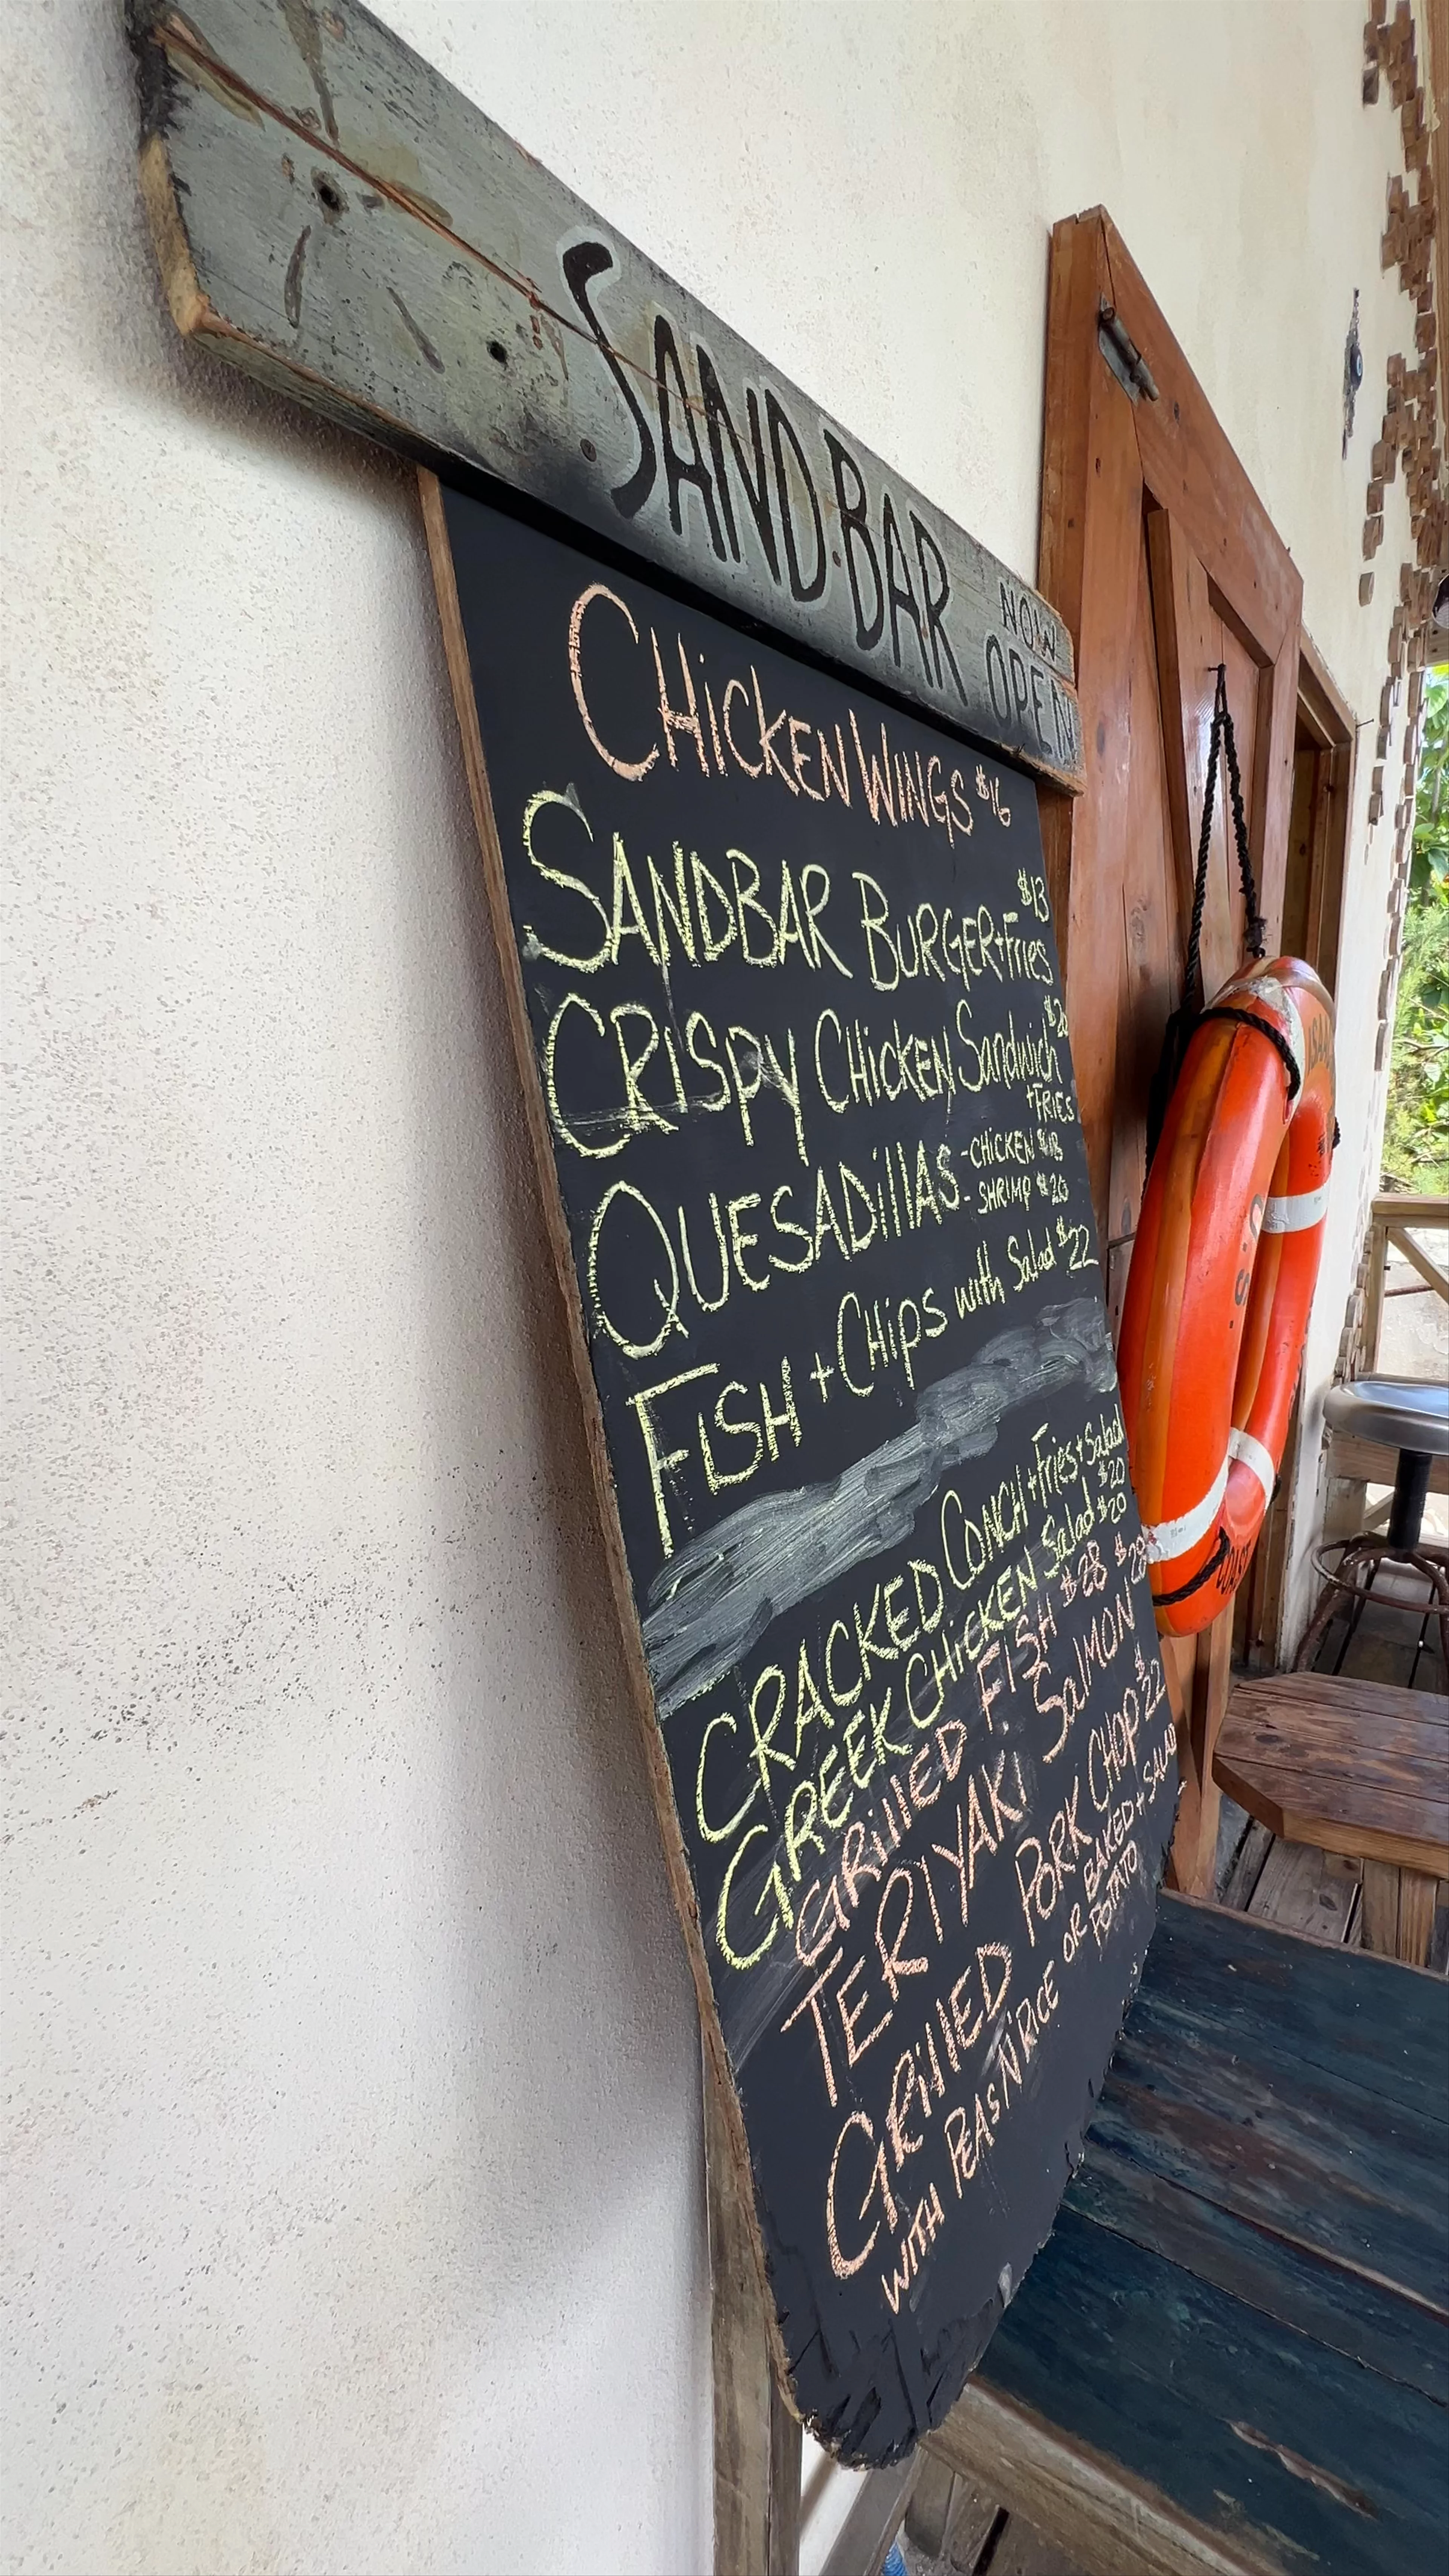 SANDBAR
NOW
OPEN
CHICKEN WINGS $16
SANDBAR BURGER + Fries $13
CRISPY CHICKEN Sandwich $20
+ FRIES
QUESADILLAS - CHICKEN $18
- SHRIMP $20
FISH + CHIPS with Salad $22
CRACKED CONCH + Fries + Salad
$20
GREEK CHICKEN Salad $20
GRILLED FISH $28
TERIYAKI SALMON $28
GRILLED PORK CHOP $22
WITH PEAS N' RICE OR BAKED + SALAD
POTATO
U.S.
COAST